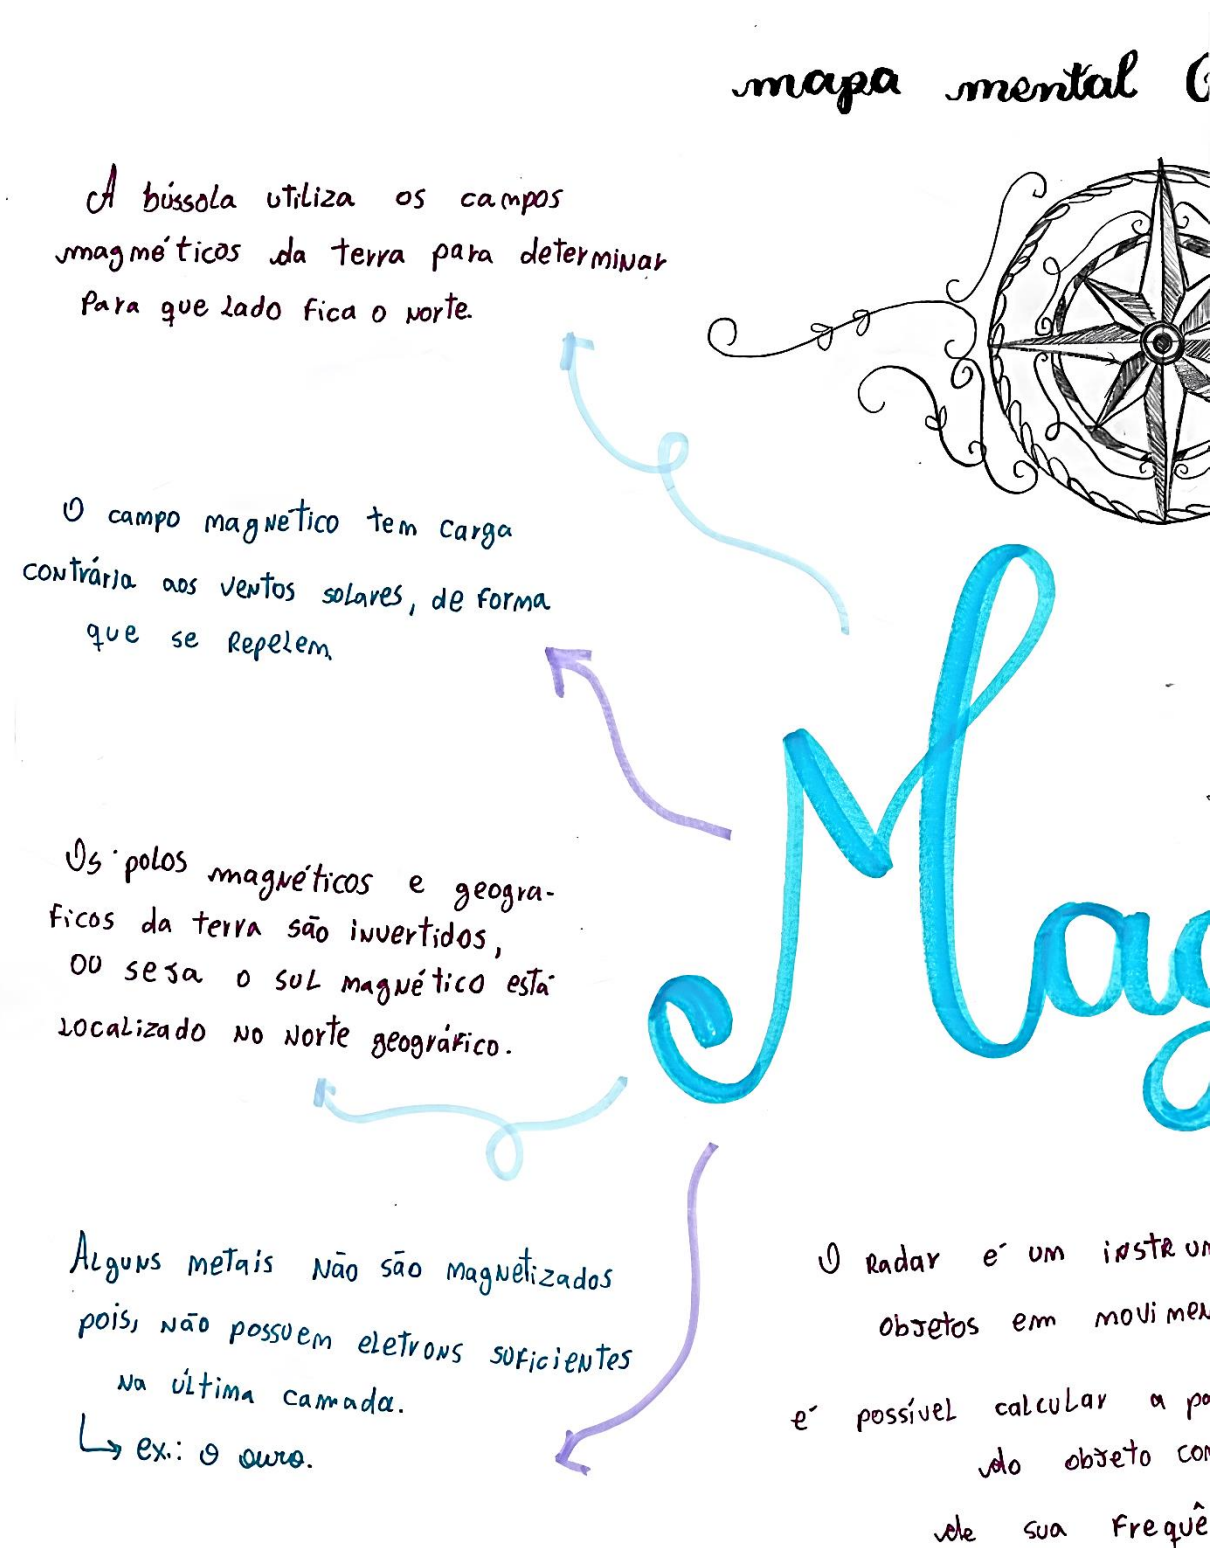 mapa mental
A bússola utiliza os campos
magnéticos da terra para determinar
para que lado fica o norte.
O campo magnético tem carga
contrária aos ventos solares, de forma
que se repelem
Os polos magnéticos e geogra-
ficos da terra são invertidos,
ou seja o sul magnético está
localizado no norte geográfico.
Mag
Alguns metais não são magnetizados
pois, não possuem eletrons suficientes
na última camada.
↳ ex.: o ouro.
O radar é um instrum
objetos em movimen
é possível calcular a po
do objeto com
de sua frequê